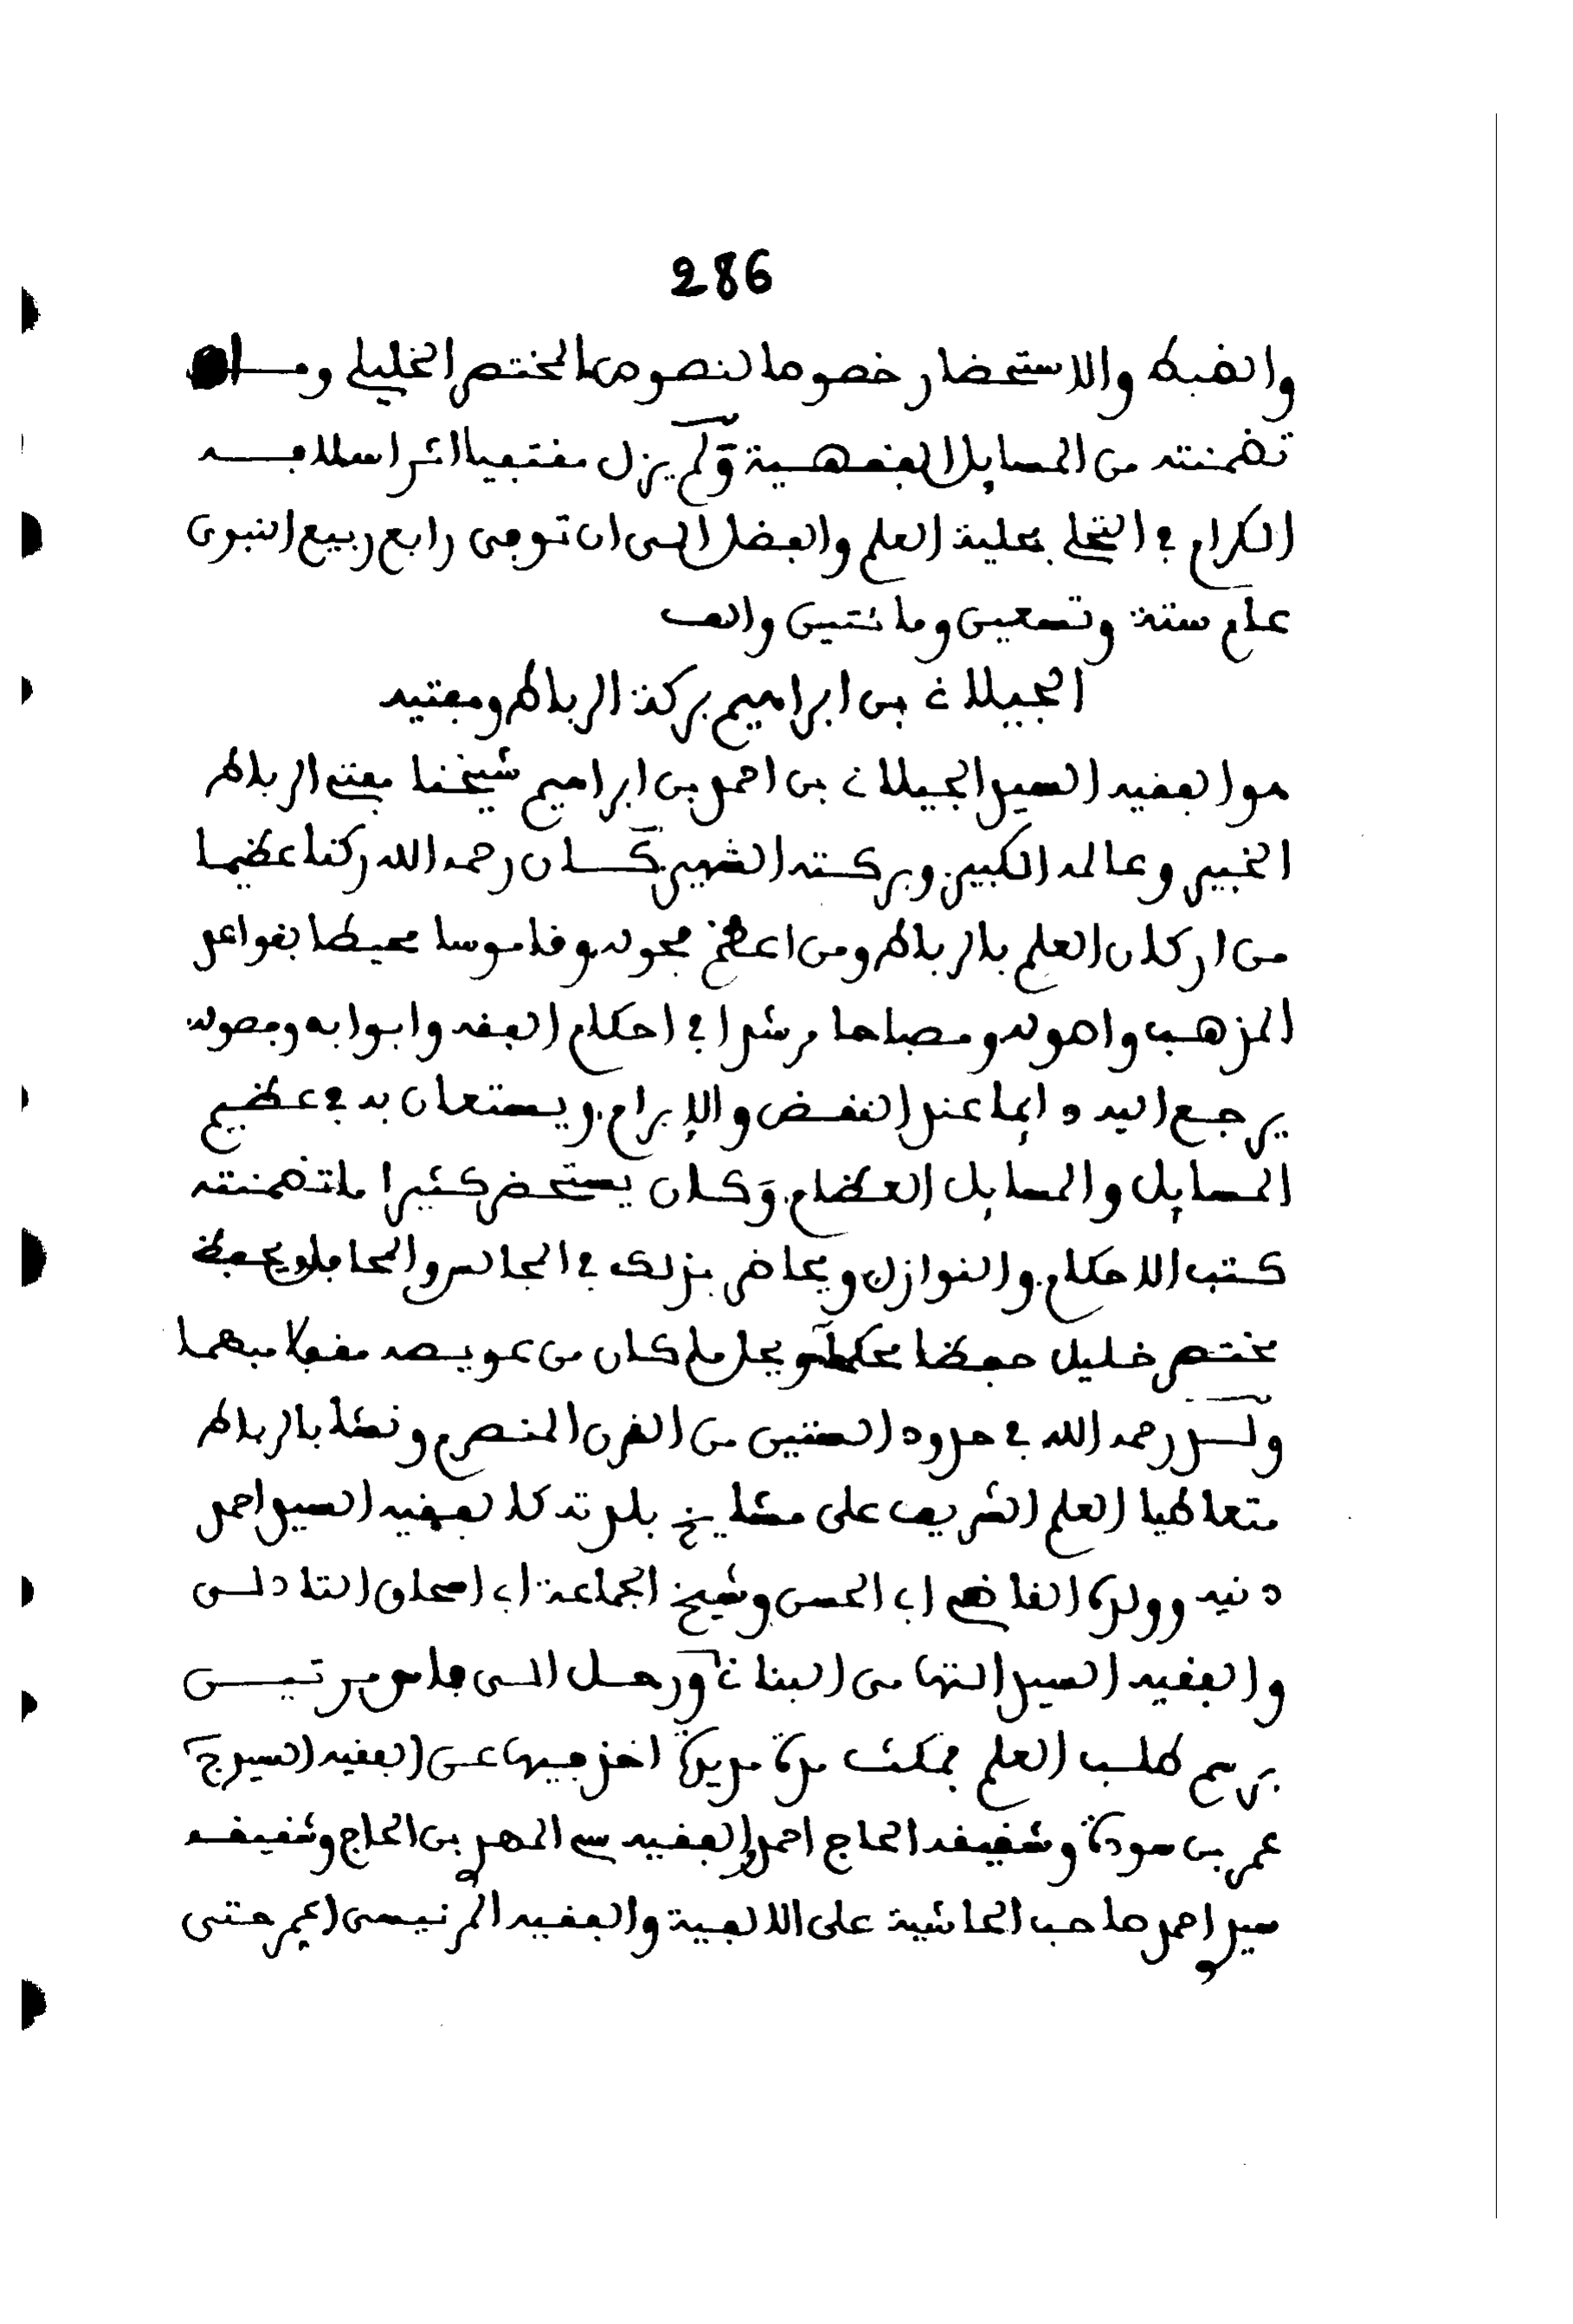 286
والضبط والاستحضار خصوصا لنصوص المختصر الخليلي وما
تضمنته من المسايل الفقهية ولم يزل مقتفيا اثر اسلافه
الكرام في التحلي بحلية العلم والفضل الى ان توفي رابع ربيع النبوي
عام ستة وتسعين ومائتين والف
الجيلاني بن ابراهيم بركة الرباط ومفتيه
هو الفقيه السيد الجيلاني بن احمد بن ابراهيم شيخنا مفتي الرباط
الخبير وعالمه الكبير. وبركته الشهير. كان رحمه الله ركنا عظيما
من اركان العلم بالرباط ومن اعظم فحوله. وقاموسا محيطا بقواعد
المذهب واصوله ومصباحا مرشدا في احكام الفقه وابوابه وفصوله.
يرجع اليه دايما عند النقض والإبرام. ويستعان به في عظيم
المسايل والمسايل العظام. وكان يستحضر كثيرا ما تضمنته
كتب الاحكام. والنوازل ويحاضر بذلك في المجالس والمحافل ويحفظ
مختصر خليل حفظا محكما ويحل ما كان من عويصه مقفلا مبهما
ولد رحمه الله في حدود الستين من القرن المنصرم ونشأ بالرباط
متعاطيا العلم الشريف على مشايخ بلدته كالفقيه السيد احمد
دنيه وولده القاضي ابي الحسن وشيخ الجماعة ابي اسحاق التادلي
والفقيه السيد التهامي البناني ورحل الى فاس مرتين
برسم طلب العلم فمكث مدة مديدة اخذ فيها عن الفقيه السيد ج
عمر بن سودة وشقيقه الحاج احمد والفقيه سي المهدي بن الحاج وشقيقه
سيدي احمد صاحب الحاشية على الالفية والفقيه المرنيسي اعمر حتى